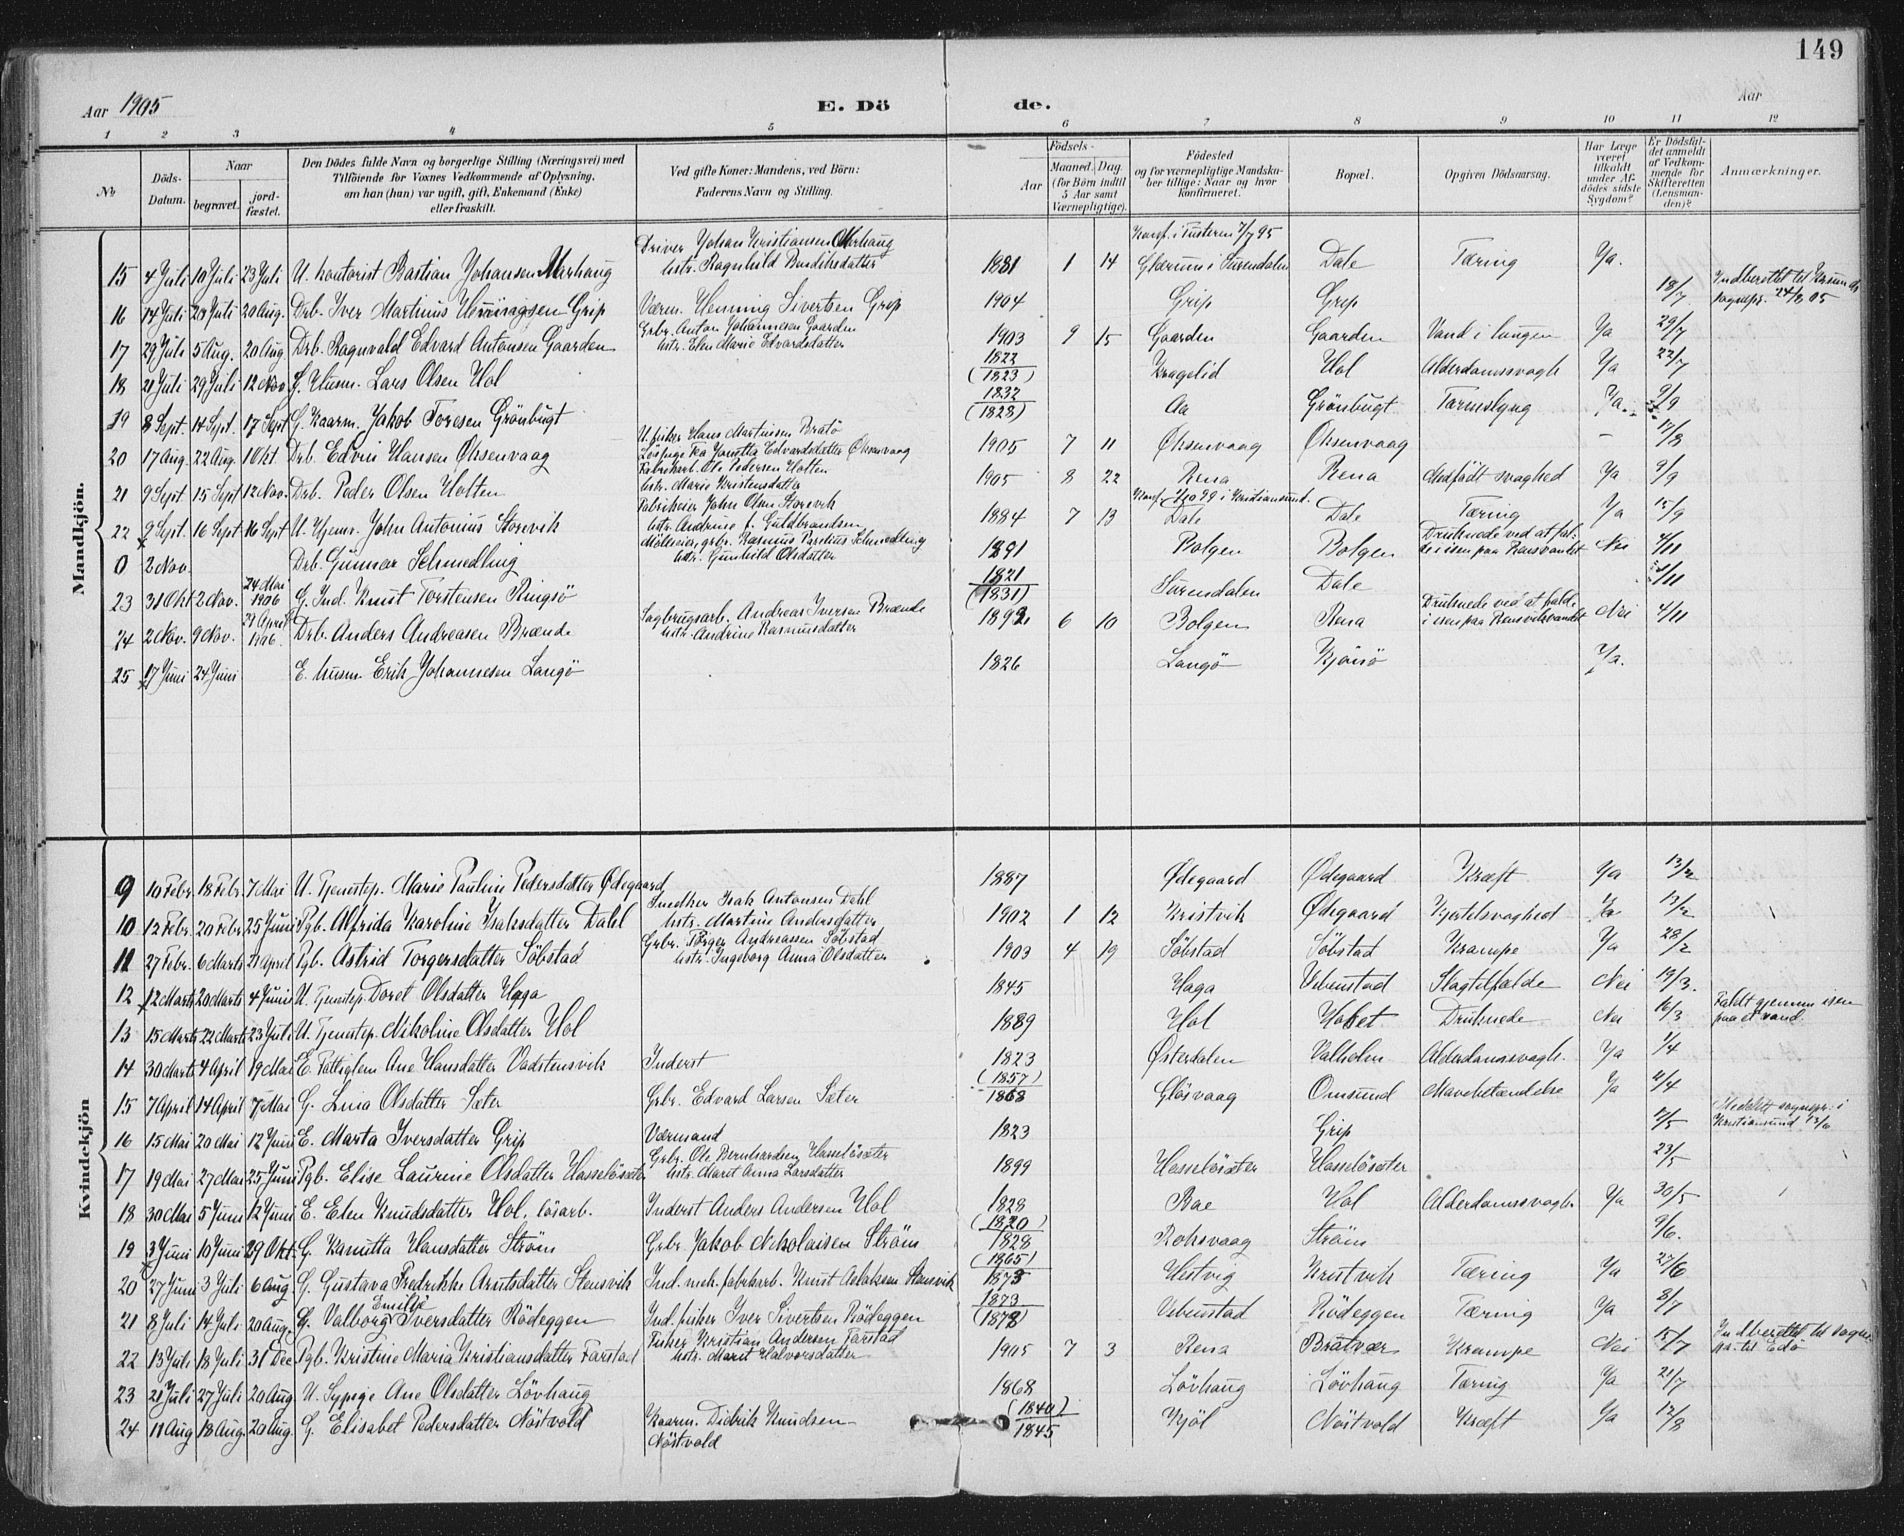 149
Aar 1905 E. Döde. Aar
1 2 3 4 5 6 7 8 9 10 11 12
№ Döds-Datum. Naar begravet. jordfæstet. Den Dödes fulde Navn og borgerlige Stilling (Næringsvei) med Tilföiende for Voxnes Vedkommende af Oplysning, om han (hun) var ugift, gift, Enkemand (Enke) eller fraskilt. Ved gifte Koner: Mandens, ved Börn: Faderens Navn og Stilling. Födsels- Aar Maaned. Dag. (for Börn indtil 5 Aar samt Værnepligtige). Födested og for værnepligtige Mandskaber tillige: Naar og hvor konfirmeret. Bopæl. Opgiven Dödsaarsag. Har Læge været tilkaldt under Afdödes sidste Sygdom? Er Dödsfaldet anmeldt af Vedkommende for Skifteretten (Lensmanden)? Anmærkninger.
Mandkjön.
Driver Johan Kristiansen Marhaug Konf. i Tusteren 7/7 95
15 4 Juli 10 Juli 23 Juli U. kontorist Bastian Johansen Marhaug hstr. Ragnhild Bendiksdatter 1881 1 14 Glærum i Surendalen Dale Tæring Ja.
16 14 Juli 20 Juli 20 Aug. Drb. Iver Martinus Henningsen Grip Værm. Henning Sivertsen Grip 1904 Grip Grip 18/7 Indberettet til Krsunds sognepr. 24/8 05
Grbr. Anton Johannesen Gaarden
17 29 Juli 5 Aug. 20 Aug. Drb. Ragnvald Edvard Antonsen Gaarden hstr. Elen Marie Edvardsdatter 1903 9 15 Gaarden Gaarden Vand i lungen Ja 29/7
18 21 Juli 29 Juli 12 Nov. G. Husm. Lars Olsen Hol 1822 (1823) Kragelid Hol Alderdomssvagh Ja 22/7
19 8 Sept. 14 Sept. 17 Sept G. Kaarm. Jakob Toresen Grönbugt 1832 (1828) Aa Grönbugt Tarmslyng Ja. 9/9
U. fisker Hans Martinsen Bratö
20 17 Aug. 22 Aug. 1 Okt. Drb. Edvin Hansen Öksenvaag Edvardsdatter Öksenvaag 1905 7 11 Öksenvaag Öksenvaag - 17/8
Fabrikarb. Ole Pedersen Holten
21 9 Sept 15 Sept 12 Nov. Drb. Peder Olsen Holten hstr. Marie Kristensdatter 1905 8 22 Rena Rena Medfödt svaghed Ja 9/9
Fabrikeier John Olsen Storvik Konf. 99 i Kristiansund.
22 9 Sept. 16 Sept 16 Sept U. Hjems. John Antonius Storvik hstr. Andrine f. Guldbrandsen 1884 7 13 Dale Dale Tæring Ja 15/9
Mölleeier, grbr. Rasmus Parelius Schmedling
0 2 Nov. Drb. Gunnar Schmedling hstr. Gunhild Olsdatter 1891 Bolgen Bolgen Druknede ved at falde i isen paa Rensvandet Nei 4/11
23 31 Okt 2 Nov. 24 Mai 1906 G. Ind. Knut Torstensen Ringsö 1821 (1831) Surendalen Dale /11
24 2 Nov. 9 Nov. 29 April 1906. Drb. Anders Andreasen Brænde Sagbrugsarb. Andreas Iversen Brænde hstr. Andrine Rasmusdatter 1892 6 10 Bolgen Rena Druknede ved at falde i isen paa Rensvikvandet Nei 4/11
25 17 Juni 24 Juni E. husm. Erik Johannesen Langö 1826 Langö Kjönsö Ja.
Kvindekjön
9 10 Febr. 18 Febr. 7 Mai U. Tjenestep. Marie Pauline Pedersdatter Ödegaard 1887 Ödegaard Ödegaard Kræft Ja 13/2
Snedker Isak Antonsen Dahl
10 12 Febr. 20 Febr. 25 Juni Pgb. Alfrida Karoline Isaksdatter Dahl hstr. Martine Andersdatter 1902 1 12 Kristvik Ödegaard Kjertelsvaghed Ja 13/2
Grbr. Torger Andreassen Söbstad
11 27 Febr. 6 Marts 21 April Pgb. Astrid Torgersdatter Söbstad hstr. Ingeborg Anna Olsdatter 1903 4 19 Söbstad Söbstad Krampe Ja 28/2
12 12 Marts 20 Marts 4 Juni U. Tjenstep. Doret Olsdatter Haga 1845 Haga Vebenstad Slagtilfælde Nei 19/3.
13 15 Marts 22 Marts 23 Juli U. Tjenestep. Nikoline Olsdatter Hol 1889 Hol Holset Druknede Nei 16/3 Faldt gjennem isen paa et vand.
14 30 Marts 4 April 19 Mai E. Fattiglem Ane Hansdatter Vadstensvik Inderst 1823 Österdalen Valholm Alderdomssvagh. Ja 1/4
15 7 April 14 April 7 Mai G. Lina Olsdatter Sæter Grbr. Edvard Larsen Sæter (1857) 1868 Glösvaag Omsund Mavebetændelse Ja 11/4
16 15 Mai 20 Mai 12 Juni E. Marta Iversdatter Grip Værmand 1823 Grip 17/5 Meddelt sognepr. i Kristiansund 13/6
Grbr. Ole Bernhardsen Hasselösæter
17 19 Mai 27 Mai 25 Juni Pgb. Elise Laurine Olsdatter Hasselösæter hstr. Maret Anna Larsdatter 1899 Hasselösæter Hasselösæter 23/5
18 30 Mai 5 Juni 12 Juni E. Elen Knudsdatter Hol, lösarb. Inderst Anders Andersen Hol 1828 Bae Hol Alderdomssvagh. Ja 30/5
19 3 Juni 10 Juni 29 Okt. G. Kanutta Hansdatter Ström Grbr. Jakob Nikolaisen Ström (1820) 1828 Roksvaag Ström 9/6.
20 27 Juni 3 Juli 6 Aug. G. Gustava Fredrikke Arntsdatter Stensvik Ind. mek. fabrikarb. Knut Aslaksen Stensvik (1865) 1873 Hestvig Kristvik Tæring Ja 27/6
21 8 Juli 14 Juli 20 Aug. G. Valborg Emilie Iversdatter Rödeggen Ind. fisker Iver Sivertsen Rödeggen 1873 (1878) Vebenstad Rödeggen Tæring Ja 8/7
Fisker Kristian Andersen Farstad
22 13 Juli 18 Juli 31 Dec Pgb. Kristine Maria Kristiansdatter Farstad hstr. Marit Halvorsdatter 1905 7 3 Rena Bratvær Krampe Nei 15/7 Indberettet til sognepr. til Edö
23 21 Juli 27 Juli 20 Aug U. Sypige Ane Olsdatter Lövhaug 1868 Lövhaug Lövhaug Tæring Ja 21/7
24 11 Aug 18 Aug. 20 Aug. G. Elisabet Pedersdatter Nöstvold Kaarm. Didrik Knudsen Nöstvold (1840) 1845 Kjöl Nöstvold Kræft Ja 12/8